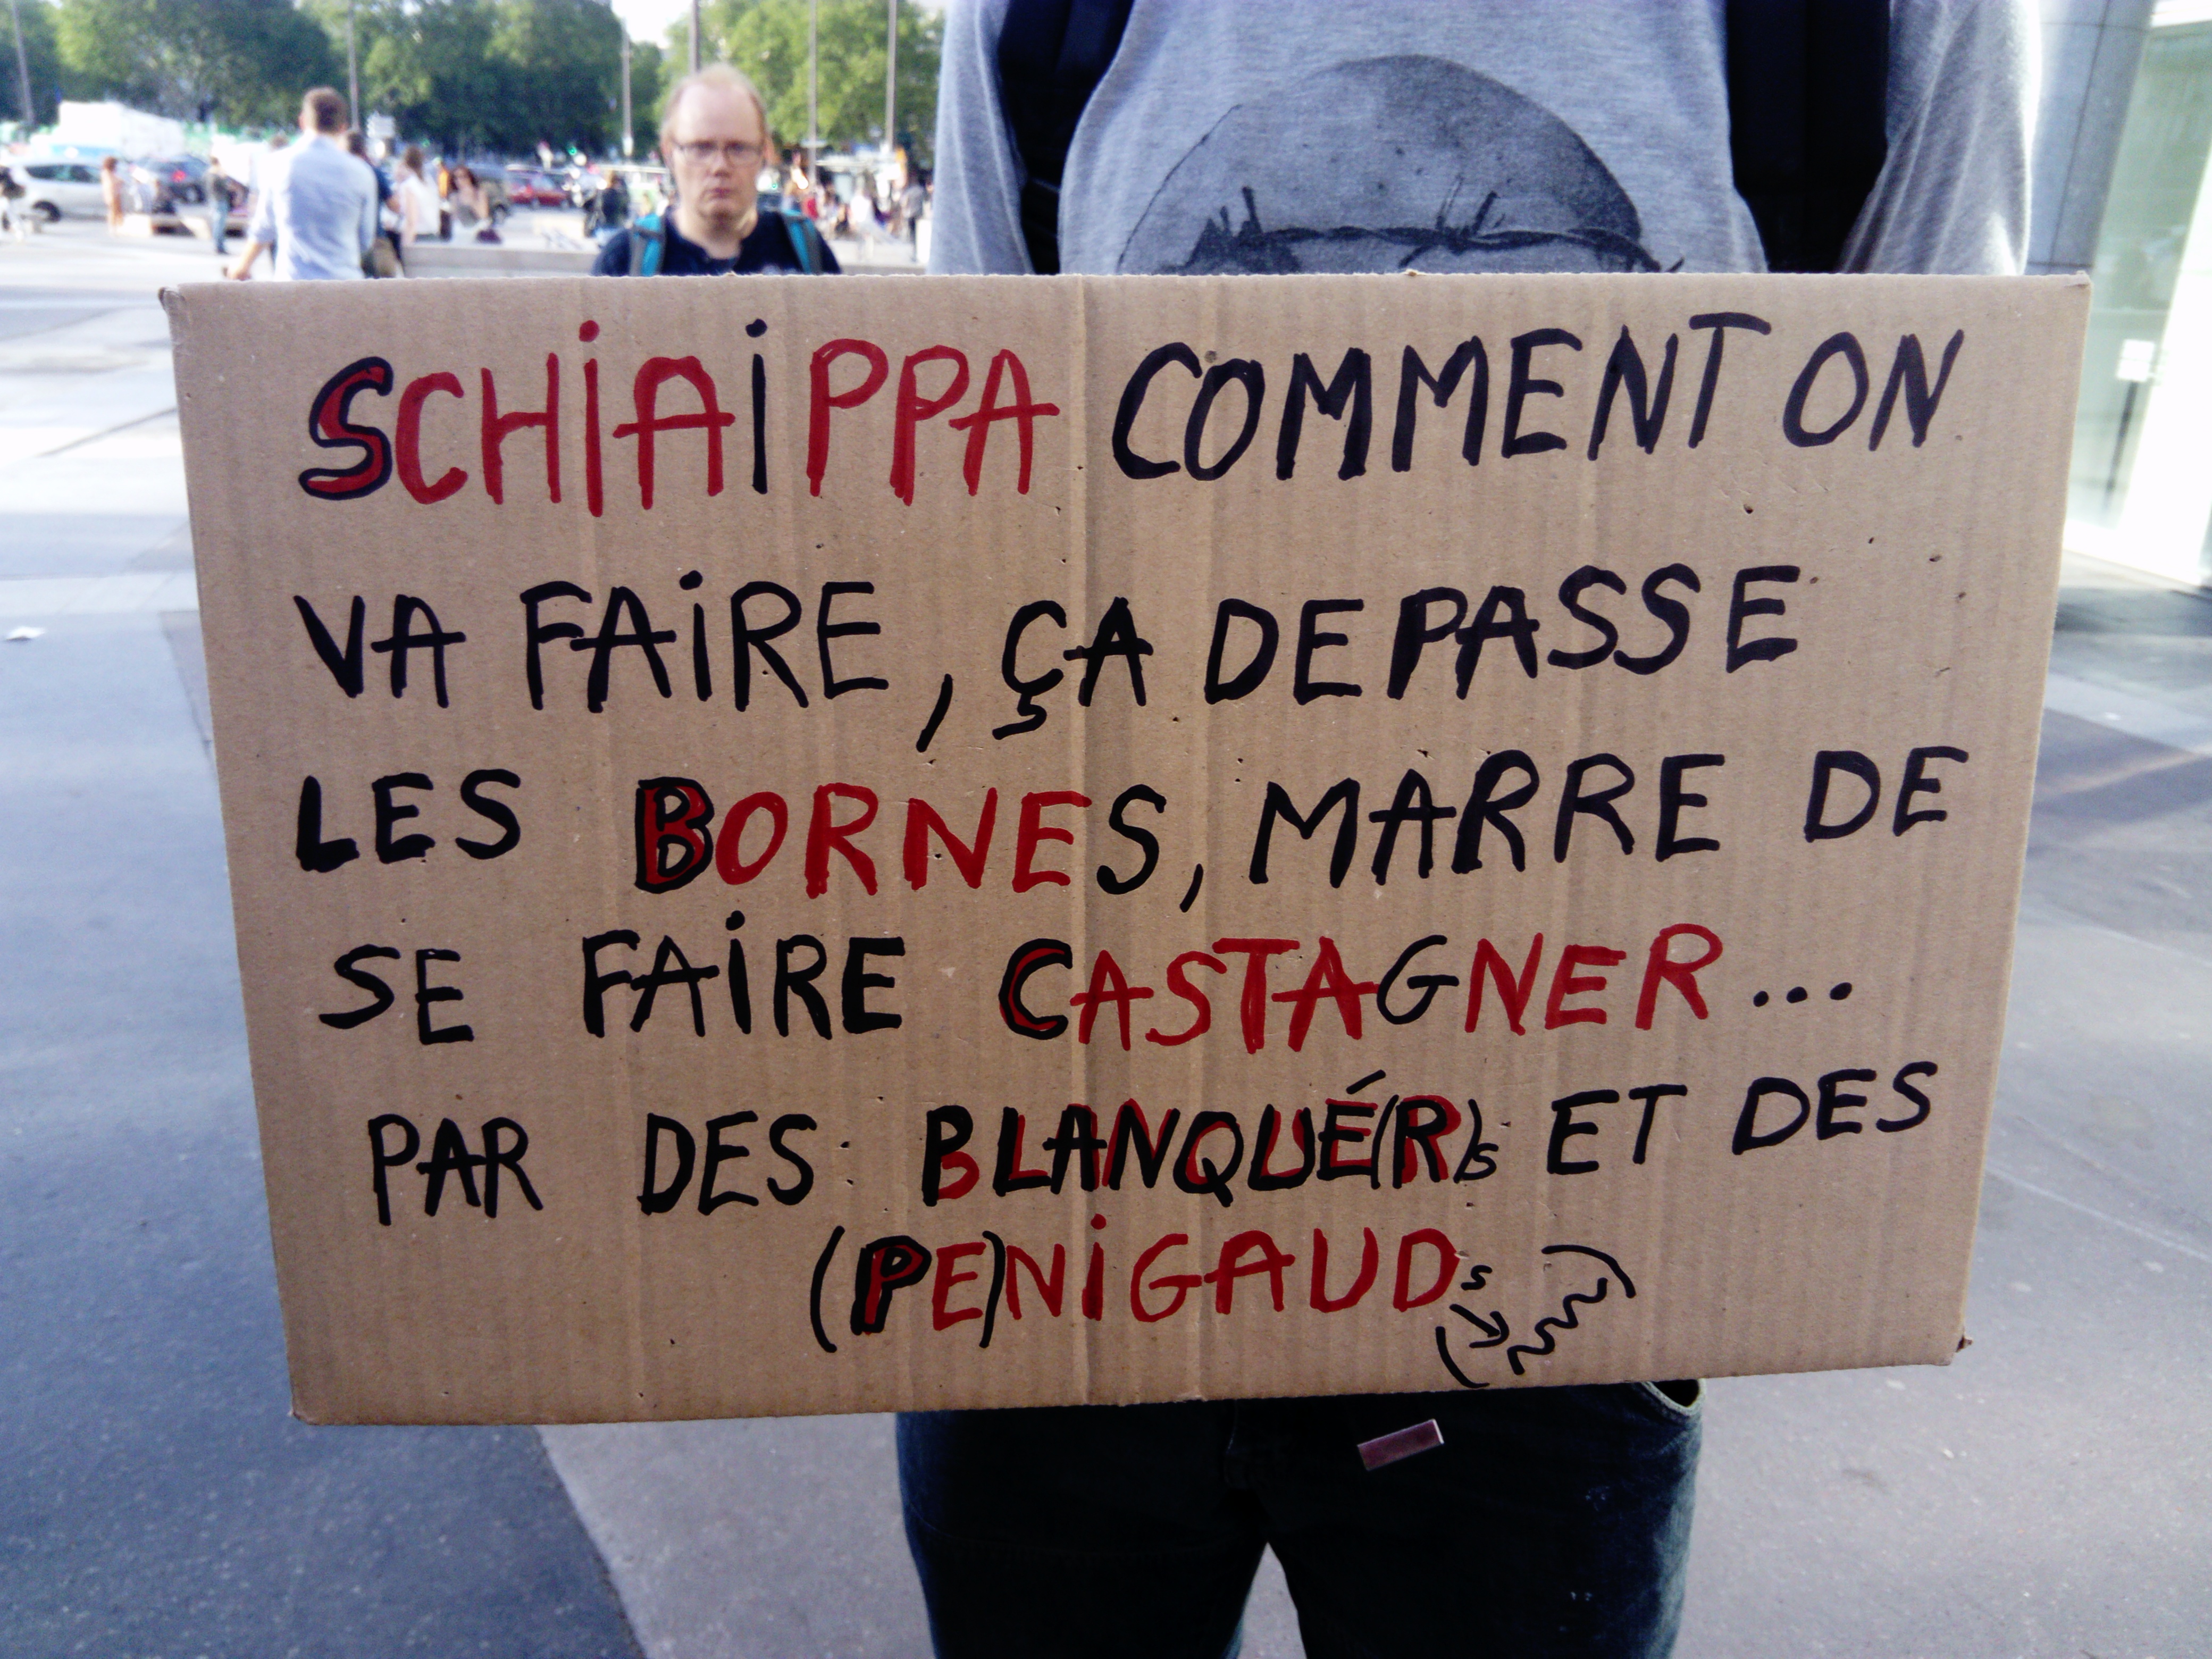 SCHiAiPPA COMMENT ON
VA FAiRE, ÇA DEPASSE
LES BORNES, MARRE DE
SE FAiRE CASTAGNER...
PAR DES BLANQUÉ(R)s ET DES
(PE)NiGAUDs